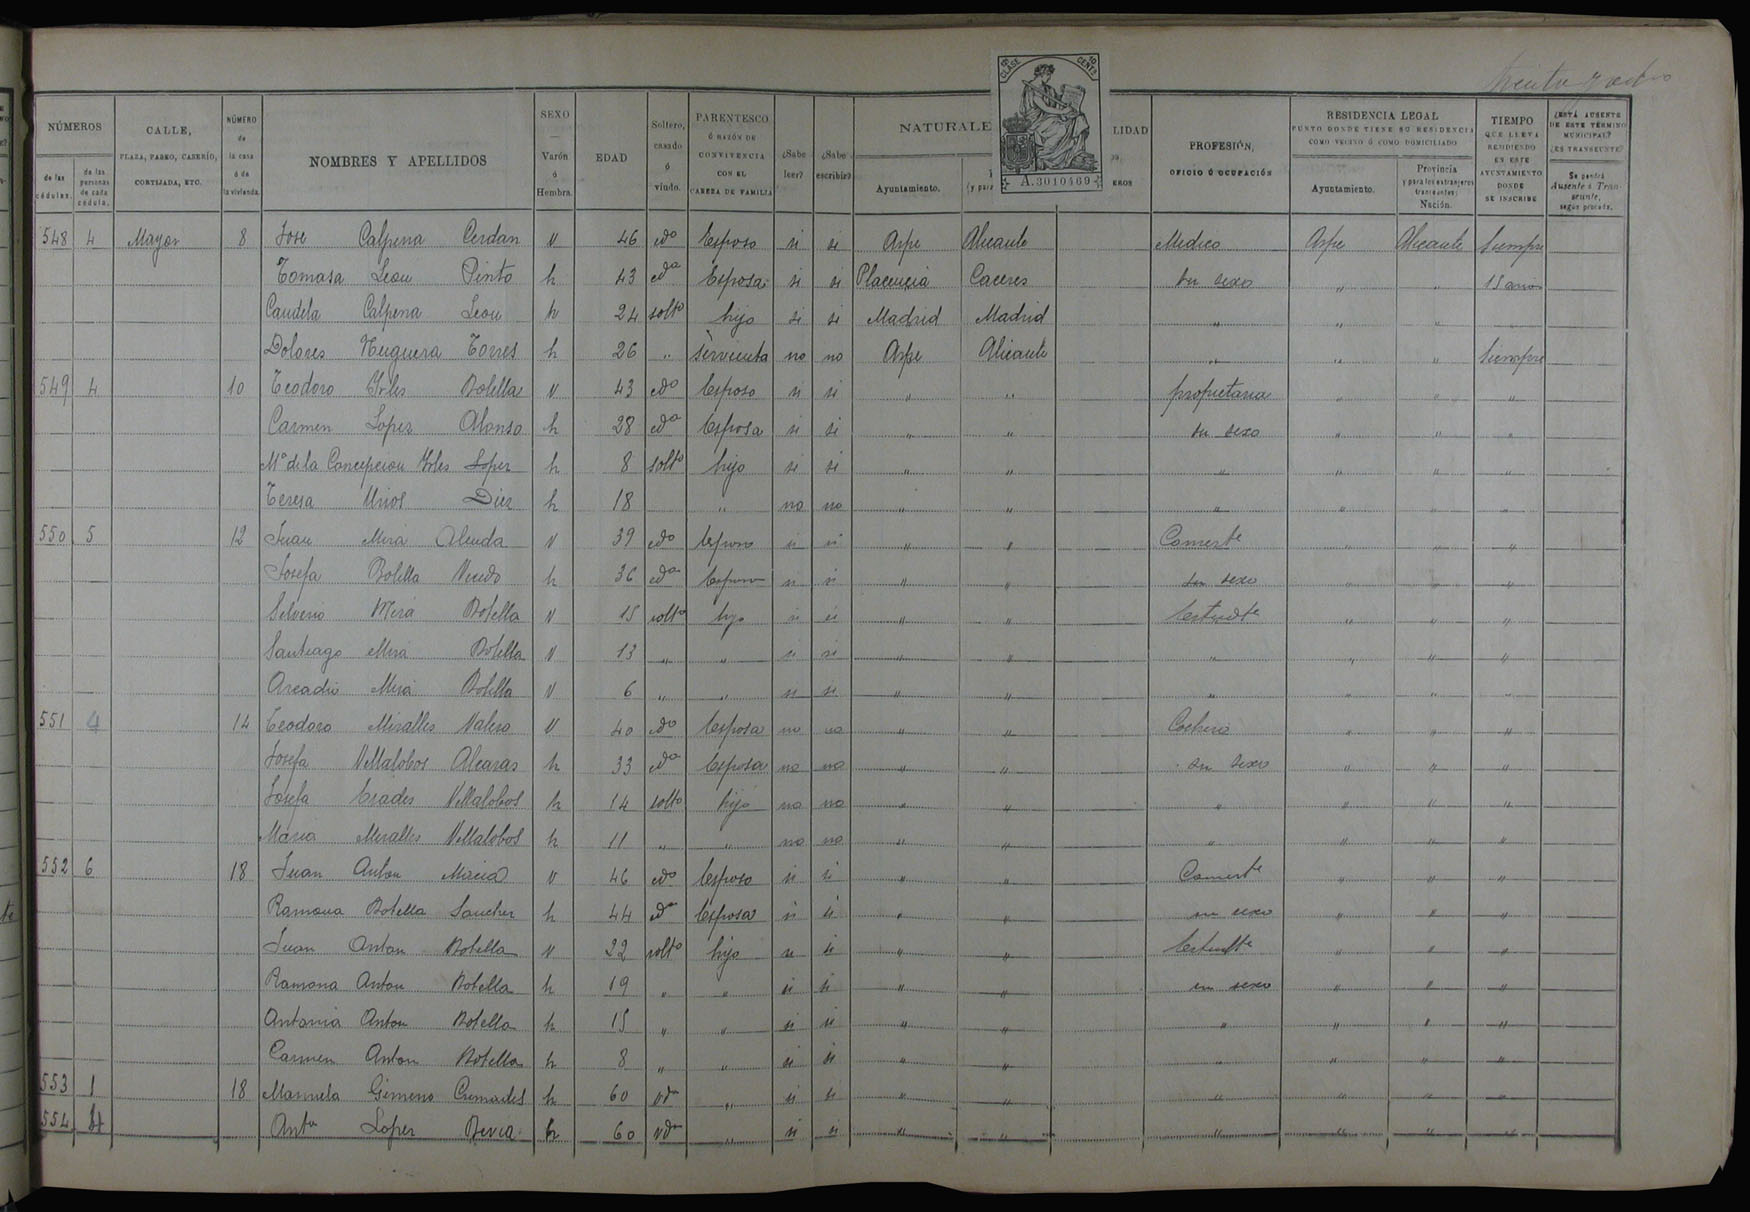 NÚMEROS CALLE, PLAZA, PASEO, CASERÍO, CORTIJADA, ETC. NÚMERO de la casa ó de la vivienda. NOMBRES Y APELLIDOS SEXO — Varón ó Hembra. EDAD Soltero, casado ó viudo. PARENTESCO Ó RAZÓN DE CONVIVENCIA CON EL CABEZA DE FAMILIA ¿Sabe leer? ¿Sabe escribir? NATURALE LIDAD PROFESIÓN, OFICIO Ú OCUPACIÓN RESIDENCIA LEGAL PUNTO DONDE TIENE SU RESIDENCIA COMO VECINO Ó COMO DOMICILIADO TIEMPO QUE LLEVA RESIDIENDO EN ESTE AYUNTAMIENTO DONDE SE INSCRIBE ¿ESTÁ AUSENTE DE ESTE TÉRMINO MUNICIPAL? ¿ES TRANSEUNTE?
de las cédulas. de las personas de cada cédula. Ayuntamiento. (y para EROS Ayuntamiento. Provincia y para los extranjeros transeuntes: Nación. Se pondrá Ausente ó Transeunte, según proceda.
CLASE 10 CENTS
A.3010469
548 4 Mayor 8 Jose Calpena Cerdan v 46 cdo Esposo si si Aspe Alicante Medico Aspe Alicante Siempre
Tomasa Leon Pinto h 43 cda Esposa si si Placencia Caceres su sexo " " 15 años
Candela Calpena Leon h 24 solto hijo si si Madrid Madrid " " " "
Dolores Nuguera Torres h 26 " sirvienta no no Aspe Alicante " " " Siempre
549 4 10 Teodoro Yrles Botella v 43 cdo Esposo si si " " propietaria " " "
Carmen Lopez Alonso h 28 cda Esposa si si " " su sexo " " "
Ma de la Concepcion Yrles Lopez h 8 solto hijo si si " " " " " "
Teresa Urios Diez h 18 " no no " " " " " "
550 5 12 Juan Mira Almda v 39 cdo Esposo si si " " Comerte " " "
Josefa Botella Vicedo h 36 cda Esposo si si " " su sexo " " "
Silverio Mira Botella v 15 solto hijo si si " " Estudte " " "
Santiago Mira Botella v 13 " " si si " " " " " "
Arcadio Mira Botella v 6 " " si si " " " " " "
551 4 14 Teodoro Miralles Valero v 40 cdo Esposa no no " " Cochero " " "
Josefa Villalobos Alcaras h 33 cda Esposa no no " " su sexo " " "
Josefa Villalobos h 14 solto hijo no no " " " " " "
Maria Miralles Villalobos h 11 " " no no " " " " " "
552 6 18 Juan Anton v 46 cdo Esposo si si " " Comerte " " "
Ramona Botella Sanchez h 44 cda Esposa si si " " su sexo " " "
Juan Anton Botella v 22 solto hijo si si " " Estudte " " "
Ramona Anton Botella h 19 " " si si " " su sexo " " "
Antonia Anton Botella h 15 " " si si " " " " " "
Carmen Anton Botella h 8 " " si si " " " " " "
553 1 18 Manuela Gimeno Cremades h 60 vda " si si " " " " " "
554 4 Anta Lopez Bevia h 60 vda " si si " " " " " "